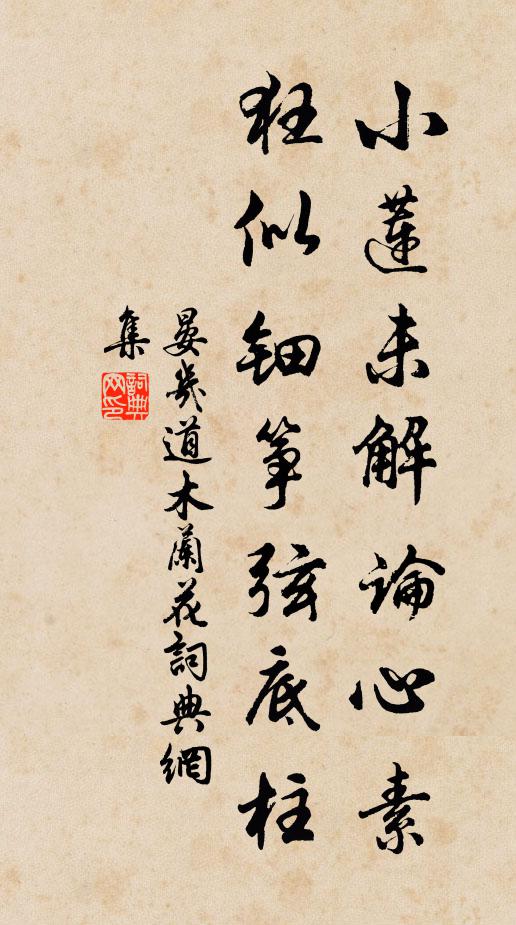 小蓮未解論心素
狂似鈿箏弦底柱
晏幾道木蘭花詞典網
集
詞典
网印